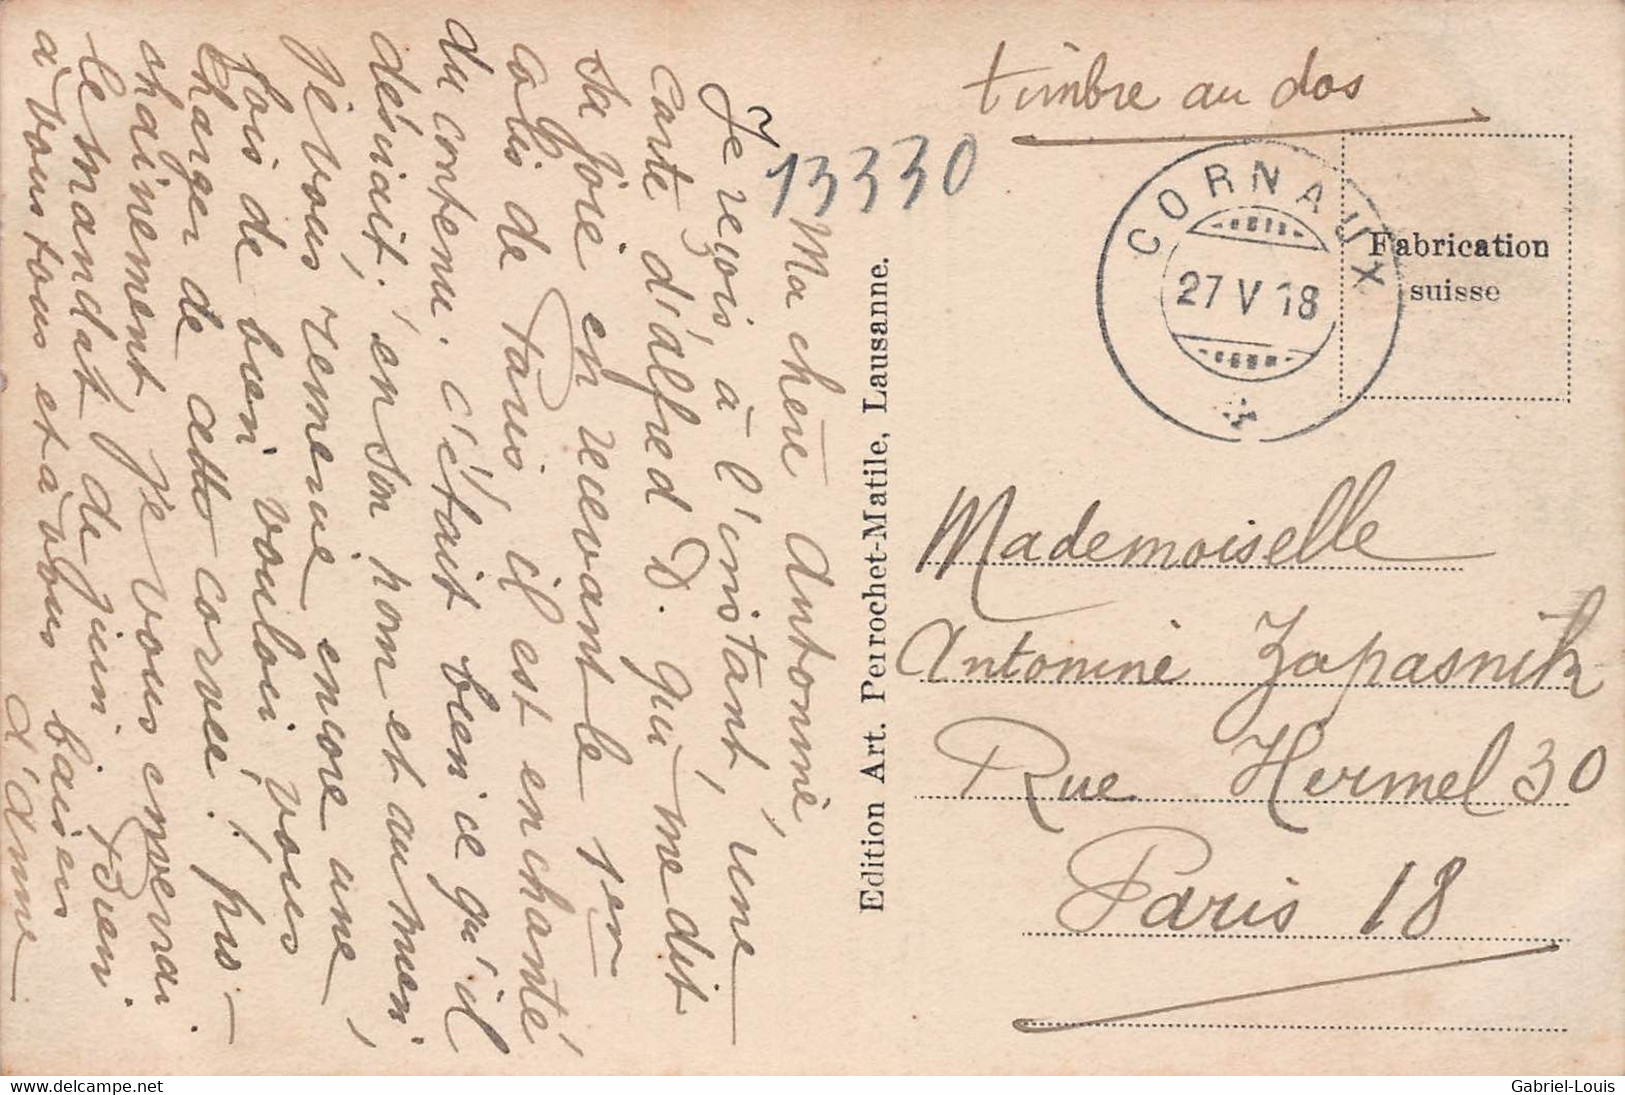 timbre au dos
13330
CORNAUX
27 V 18
Fabrication
suisse
Mademoiselle
Antonine Zapasnik
Rue Hermel 30
Paris 18
Edition Art. Perrochet-Matile, Lausanne.
Ma chère Antonine,
Je reçois à l'instant, une
carte d'Alfred D. qui me dit
sa joie en recevant le 1er
colis de Paris, il est enchanté
du contenu. c'était bien ce qu'il
désirait; en son nom et au mien
je vous remercie encore une
fois de bien vouloir vous
charger de cette corvée! pro-
chainement je vous enverrai
le mandat de juin. Bien
à vous tous et à vous baisers
d'Anne
www.delcampe.net
Gabriel-Louis